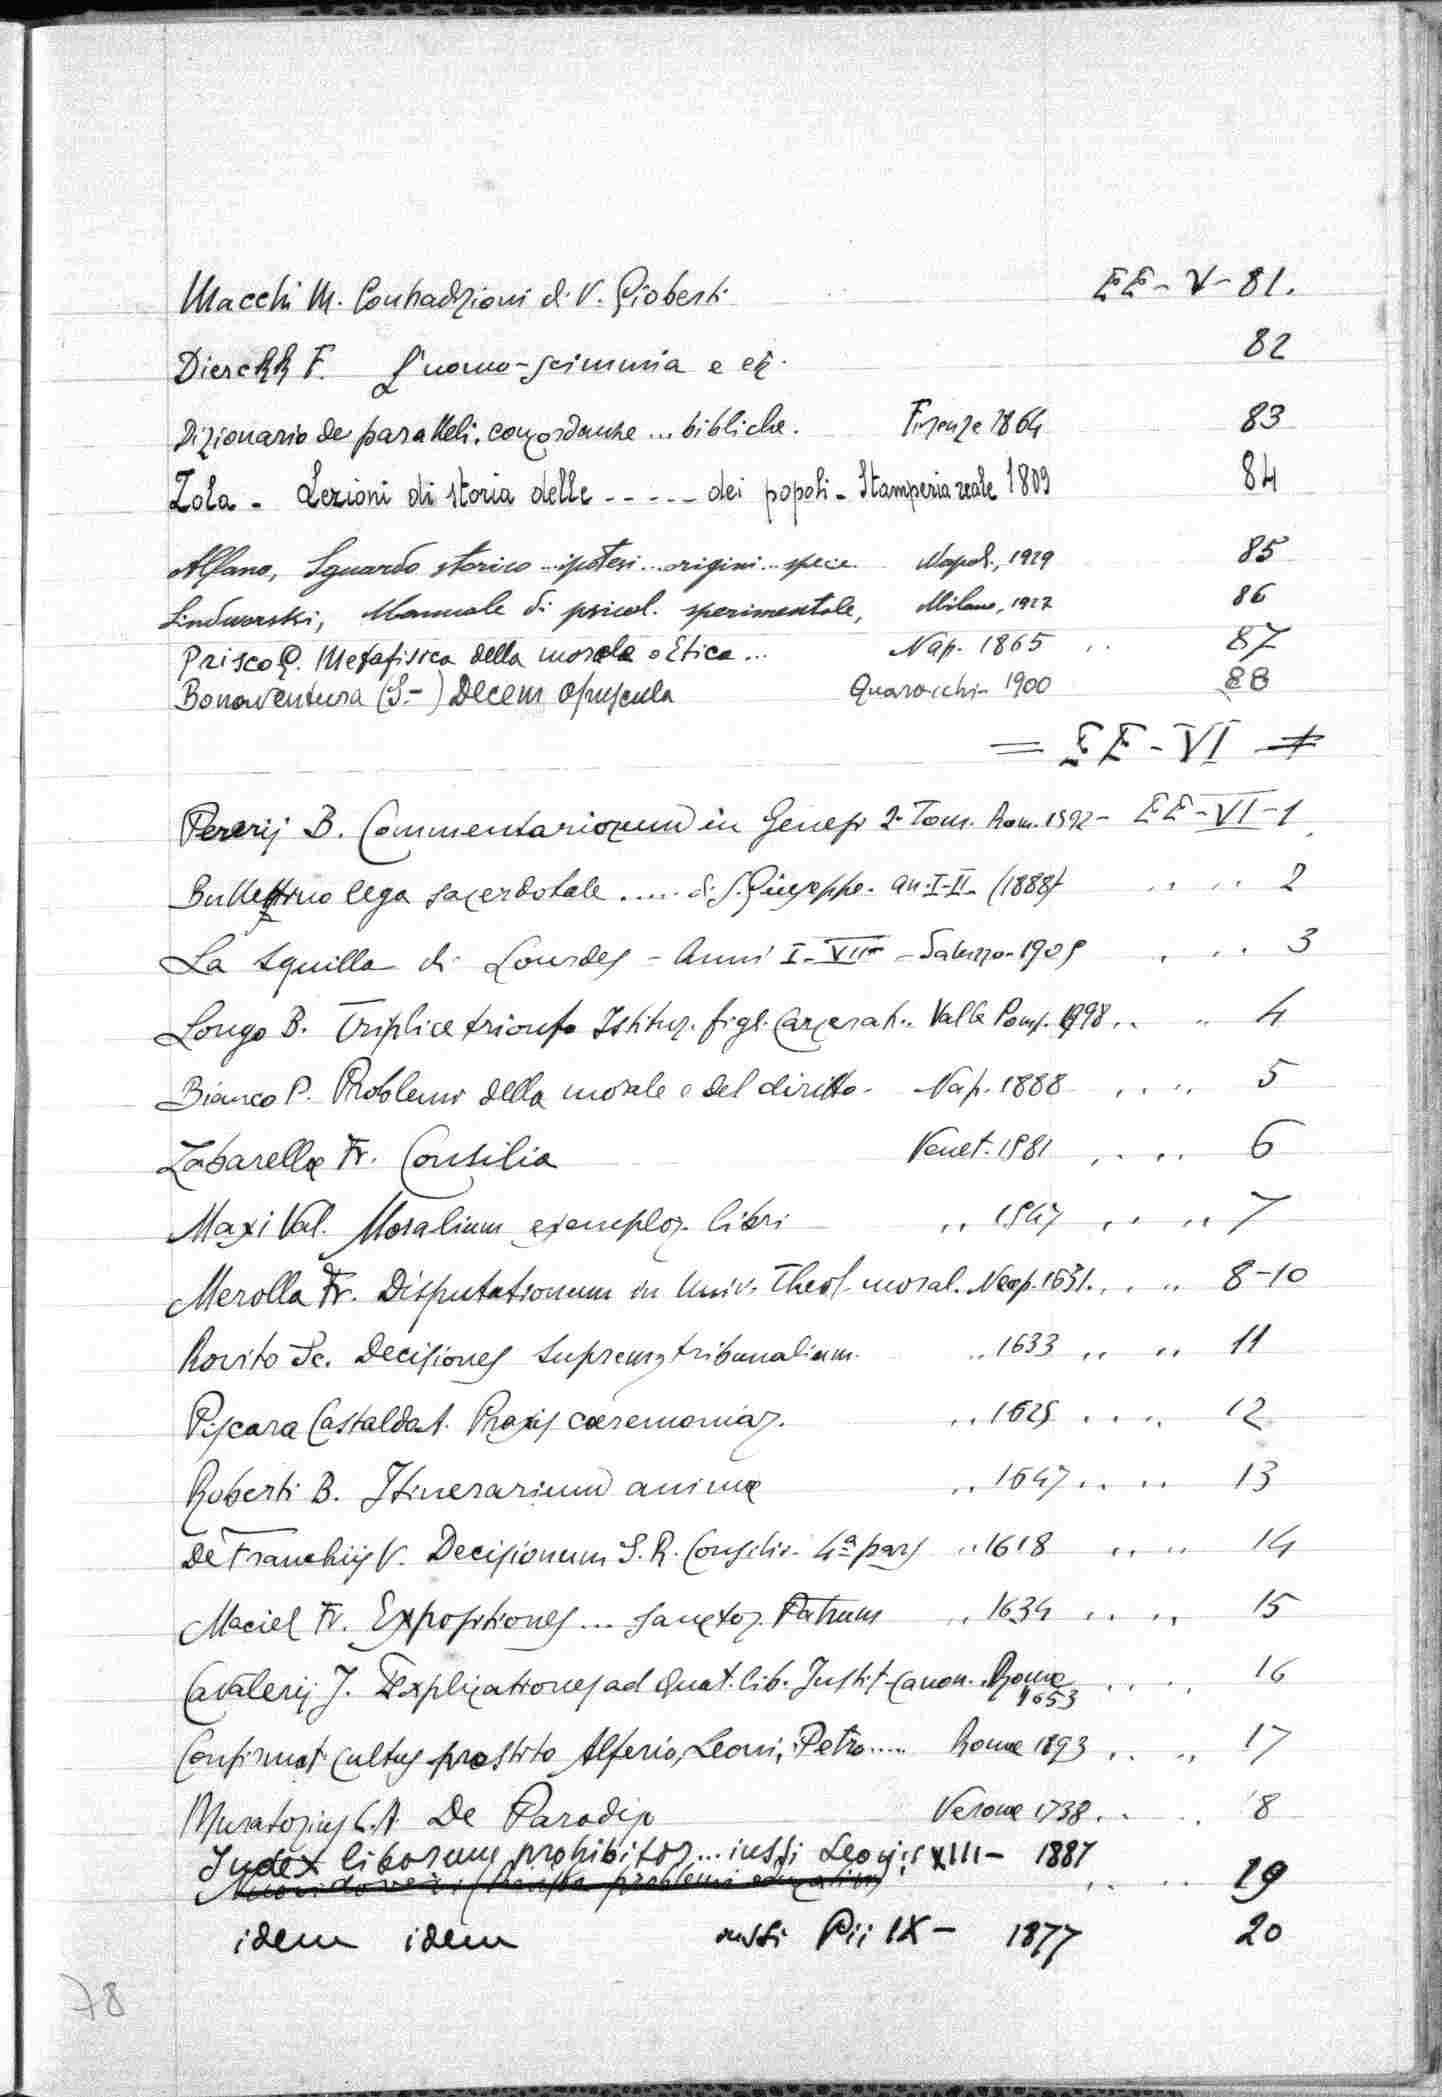 Macchi M. Contradizioni di V. Gioberti EE-V-81.
Dierckh F. L'uomo-scimmia e etc. 82
Dizionario de paralleli, concordanze ... bibliche. Firenze 1864 83
Zola - Lezioni di storia delle ----- dei popoli - Stamperia reale 1809 84
Alfano, Sguardo storico ... ipotesi ... origini ... specie Napoli, 1929 85
Lindworski, Manuale di psicol. sperimentale, Milano, 1927 86
Prisco G. Metafisica della morale o Etica ... Nap. 1865 .. 87
Bonaventura (S.-) Decem opuscula Quaracchi - 1900 88
= EE-VI =
Pererij B. Commentariorum in Genesi 2 Tom. Rom. 1592 - EE-VI-1
Bullettino lega sacerdotale ..... di S. Giuseppe. an. I-II - (1888) .. .. 2
La squilla di Lourdes - Anni I-VII - Saluzzo - 1909 . .. 3
Longo B. Triplice trionfo Istituz. figl. Carcerat.. Valle Pomp. 1898 .. .. 4
Bianco P. Problemi della morale e del diritto - Nap. 1888 .. .. 5
Zabarellae Fr. Consilia Venet. 1581 .. .. 6
Maxi Val. Moralium exemplor. libri .. 1547 .. .. 7
Merolla Fr. Disputationum in Univ. Theol. moral. Neap. 1631. .. .. 8-10
Rovito Sc. Decisiones supremor tribunalium. .. 1633 .. .. 11
Piscara Castalda A. Praxis caeremoniar. .. 1625 .. .. 12
Roberti B. Itinerarium animae .. 1647 .. .. 13
De Franchijs V. Decisionum S. R. Consilii - 4ª pars .. 1618 .. .. 14
Maciel Fr. Expositiones ... sanctor. Patrum .. 1634 .. .. 15
Cavalerij J. Explicationes ad quat. lib. Instit. canon. Romae .. .. 16
1653
Confirmat cultus praestito Alferio, Leoni, Petro ..... Romae 1893 .. .. 17
Muratorius L. A. De Paradiso Veronae 1738. .. . 18
Index librorum prohibitor ... iussi Leonis XIII - 1887
.. .. 19
idem idem iussi Pii IX - 1877 20
78